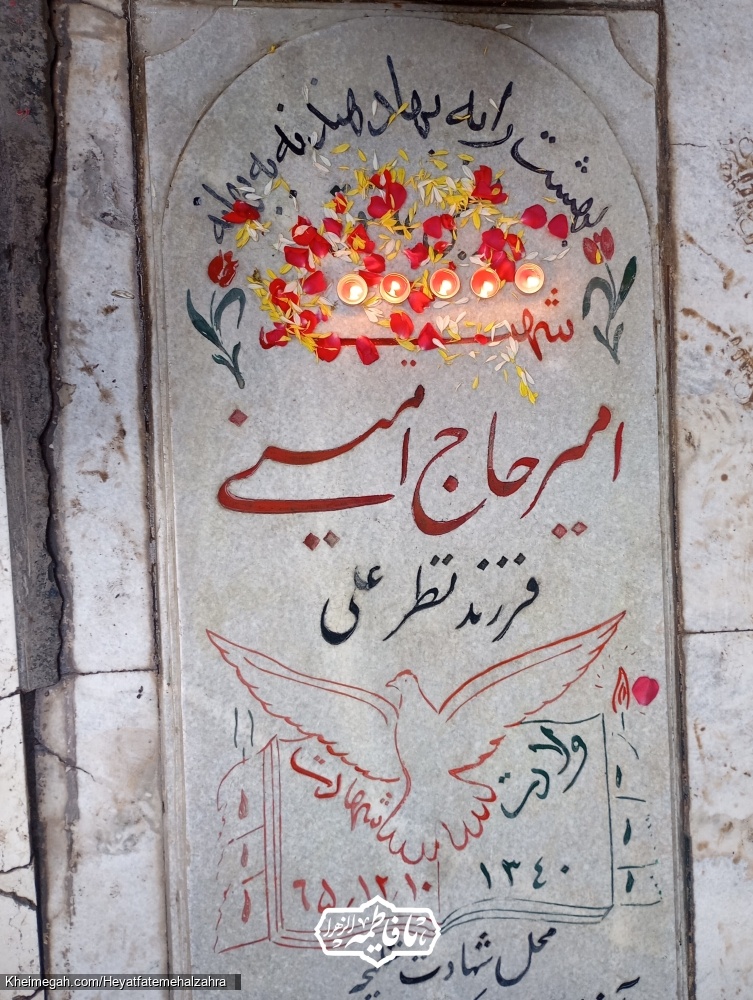 بهشت را به بها دهند نه به بهانه
شهید
امیر حاج امینی
فرزند نظر علی
ولادت
شهادت
۱۳۴۰
۶۵٫۱۲٫۱۰
محل شهادت شلمچه
یا فاطمه الزهرا
Kheimegah.com/Heyatfatemehalzahra